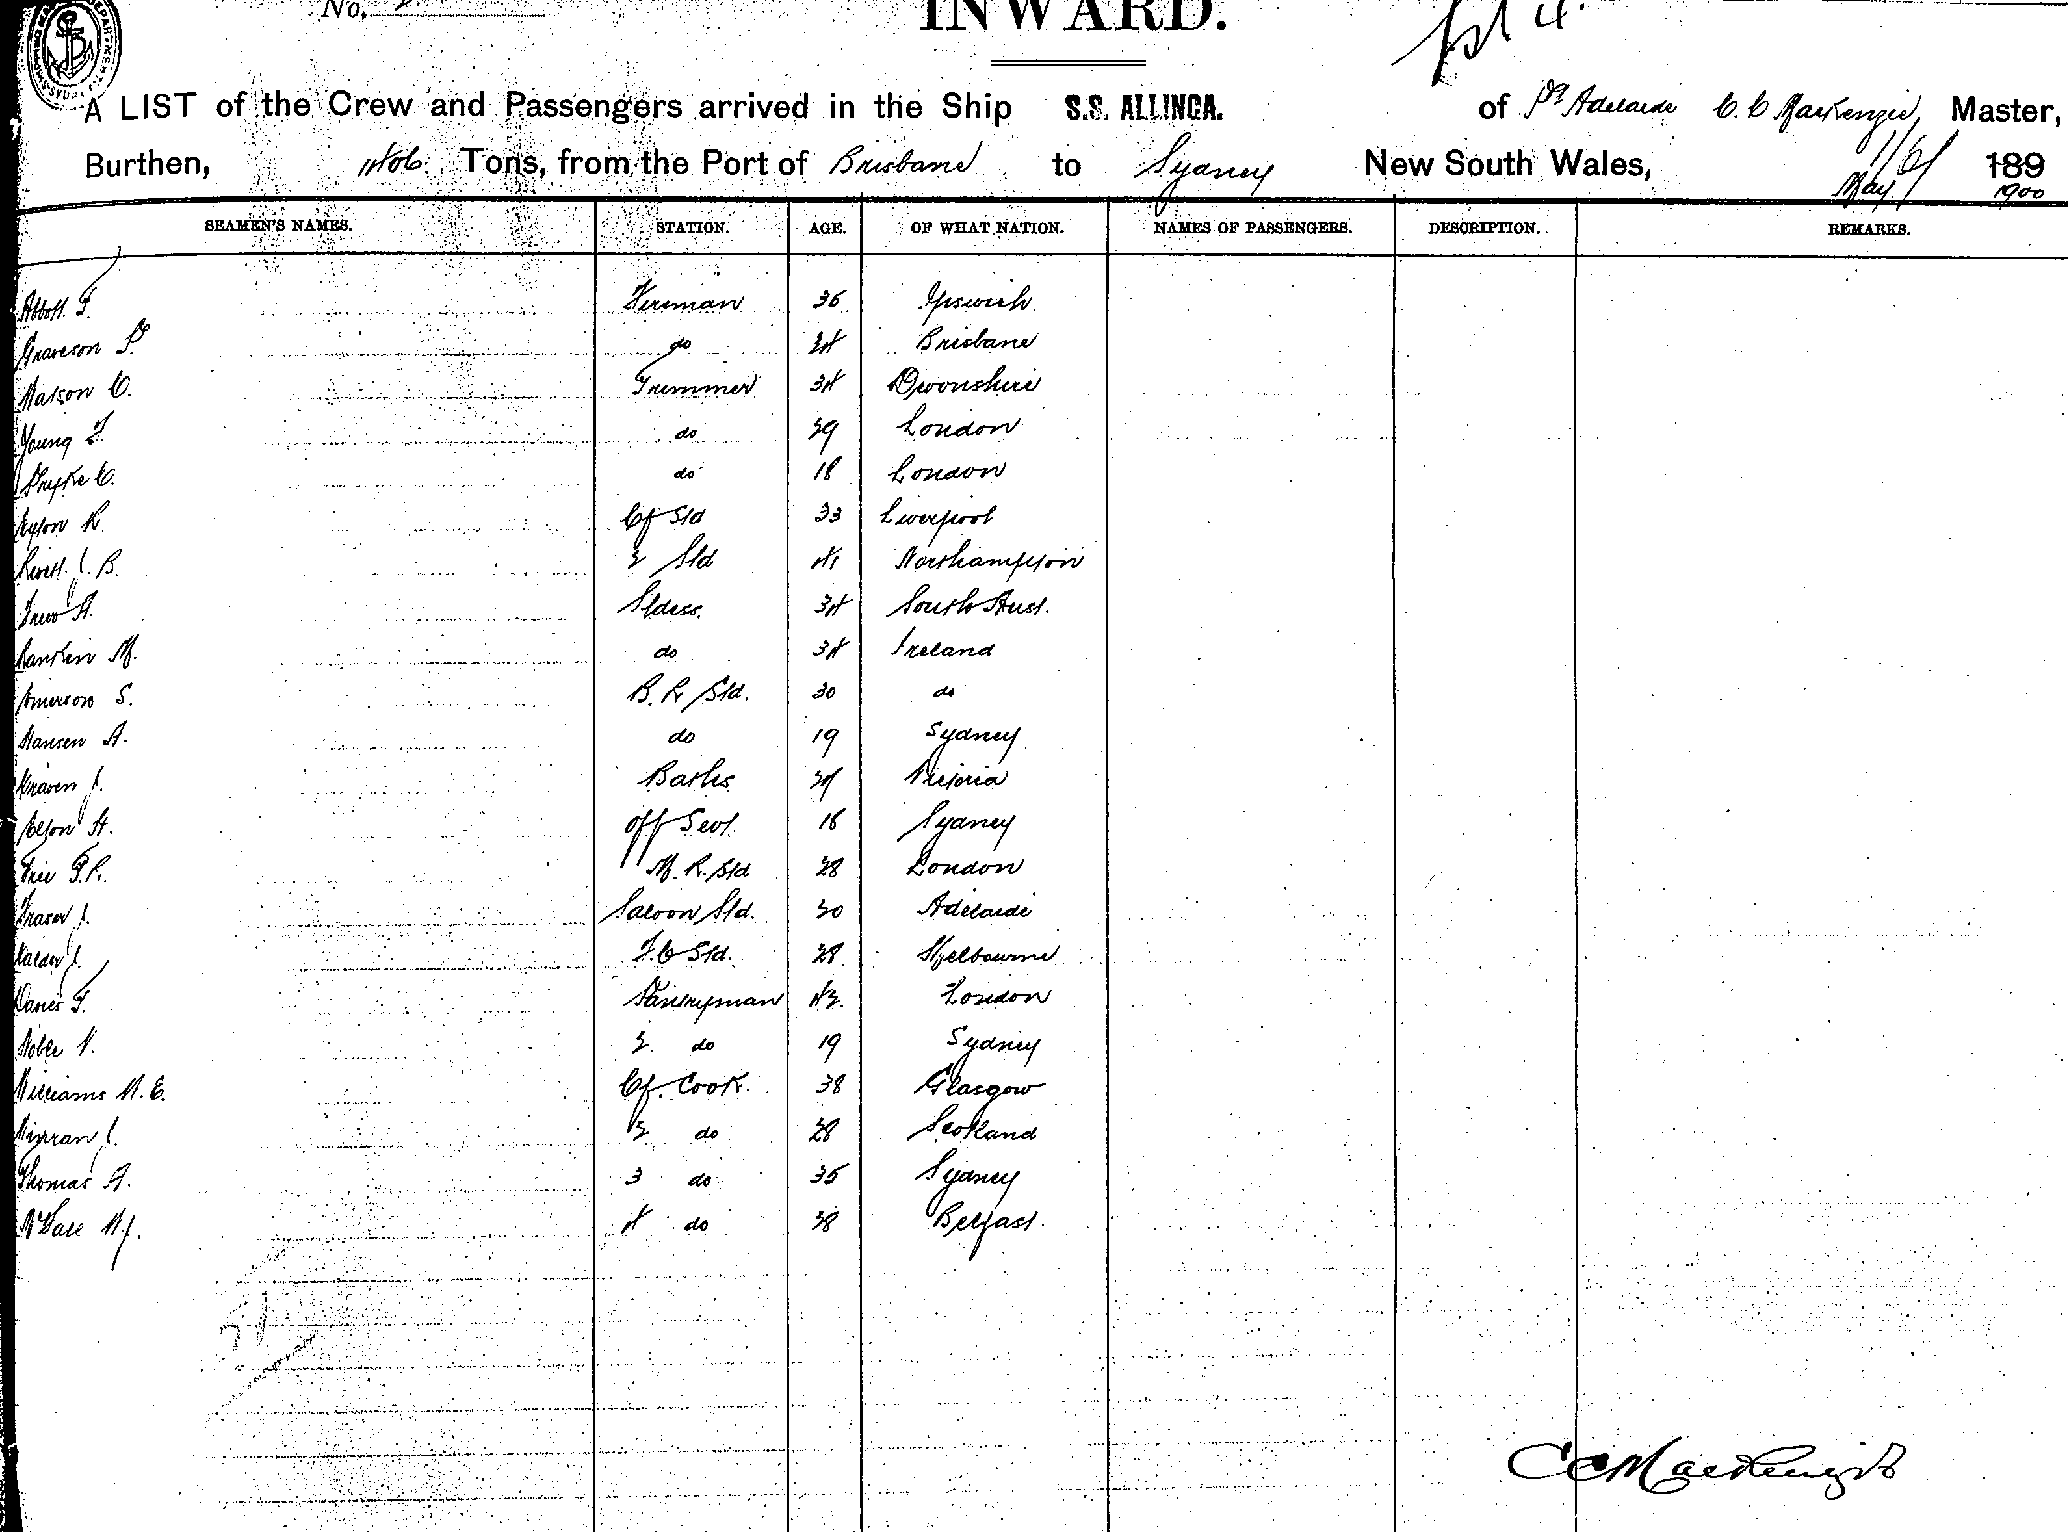 No.
INWARD.
A LIST of the Crew and Passengers arrived in the Ship S.S. ALLINGA. of Pt Adelaide C. C Mackenzie, Master,
Burthen, Tons, from the Port of Brisbane to Sydney New South Wales, May 189 1900
SEAMEN'S NAMES. STATION. AGE. OF WHAT NATION. NAMES OF PASSENGERS. DESCRIPTION. REMARKS.
Abbott F. Fireman 36 Ipswich
P. do 24 Brisbane
Watson C. Trimmer 34 Devonshire
Young F. do 29 London
C. do 18 London
R. Cf Std 33 Liverpool
J. B. 2 Std 41 Northampton
A. Stdess. 34 South Aust.
Rankin M. do 34 Ireland
S. B. R Std. 30 do
Hansen A. do 19 Sydney
J. Baths Victoria
A. Off Sevt. 16 Sydney
F. R. M. R. Std 28 London
Fraser J. Saloon Std. 30 Adelaide
Calder J. F. C Std. 28 Melbourne
F. Pantryman 42. London
Noble V. 2. do 19 Sydney
Williams W. E. Cf. Cook. 38 Glasgow
J. 2 do 28 Scotland
Thomas A. 3 do 35 Sydney
W J. 4 do 38 Belfast.
C C Mackenzie